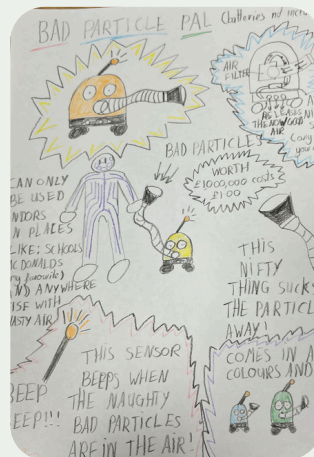 BAD PARTICLE PAL
(batteries not
AIR
FILTER
BAD PARTICLES
WORTH
£1000,000 costs
£1.00
CAN ONLY
BE USED
INDOORS
IN PLACES
LIKE; SCHOOLS
MCDONALDS
(my favourite)
AND ANYWHERE
ELSE WITH
NASTY AIR
THIS
NIFTY
THING SUCKS
THE PARTICLES
AWAY!
BEEP
BEEP!!!
THIS SENSOR
BEEPS WHEN
THE NAUGHTY
BAD PARTICLES
ARE IN THE AIR!
COMES IN A
COLOURS AND